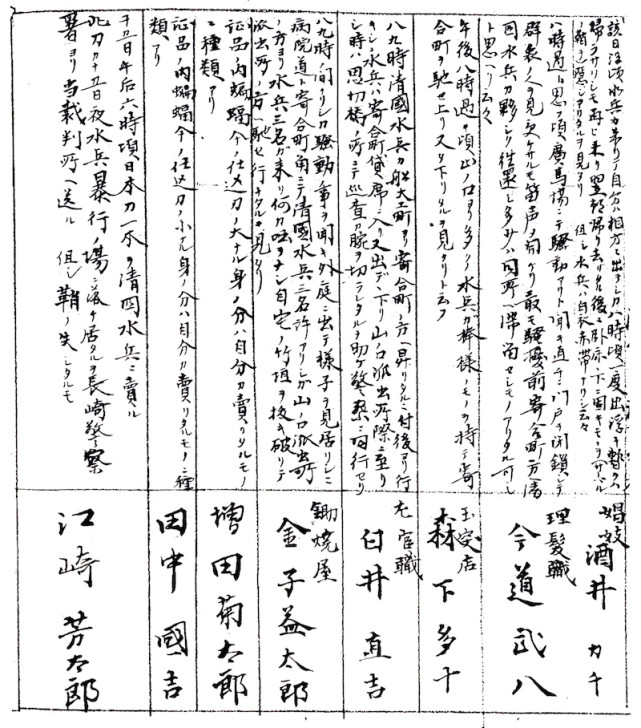 該日午後水兵来リテ自分ノ相方ニ出デシガ八時頃一度出浮キ暫ク
帰ラザリシモ再ビ来リ翌朝帰リ去リタル後
但シ水兵ハ白衣赤帯ナリ云々
娼妓 酒井カチ
八時過ト思フ頃廣馬場ニテ騒動アリト聞キ直チニ門戸ヲ閉鎖シテ
群衆ノ人ヲ見受ケサルモ笛声ヲ聞ケリ最モ騒擾前寄合町方清
国水兵カ夥シク往還シ多分ハ同所ニ滞留セシモノアリタル可シ
ト思ヘリ云々
理髪職 今道武八
午後八時過キ頃山ノ口ヨリ多クノ水兵ガ棒様ノモノヲ持テ寄
合町ヲ馳セ上リ又タ下リタルヲ見タリト云フ
玉突店 森下多十
八九時清國水兵カ船大工町ヨリ寄合町ノ方ヘ昇リタルニ付後ヨリ行
キシニ水兵ハ寄合町貸席ニ入リ又出デヽ下リ山ノ口派出所際ニ至リ
シ時ハ思切橋ノ所ニテ巡査カ腕ヲ切ラレタルヲ助ケ警察ニ同行セリ
左官職 臼井直吉
八九時ノ間ナリシカ騒動ノ事ヲ聞キ外庭ニ出テ様子ヲ見居リシニ
病院道寄合町角ニテ清國水兵三名許アリシガ山ノ口派出町
ノ方ヨリ水兵三名ガ来リ何カ咄ヲナシ自宅ノ竹垣ヲ抜キ破リテ
派出所ノ方ヘ馳セ行キタルヲ見タリ
鋤焼屋 金子益太郎
証品ノ内蝙蝠傘ノ仕込刀ノ大ナル身ノ分ハ自分カ賣リタルモノ
ニ種類アリ
増田菊太郎
証品ノ内蝙蝠傘ノ仕込刀ノ小ナル身ノ分ハ自分カ賣リタルモノニ種
類アリ
田中國吉
十五日午后六時頃日本刀一本ヲ清国水兵ニ賣ル
此刀カ十五日夜水兵暴行ノ場ニ落チ居タルヲ長崎警察
署ヨリ当裁判所ヘ送ル 但シ鞘ハ失シタルモ
江崎芳太郎